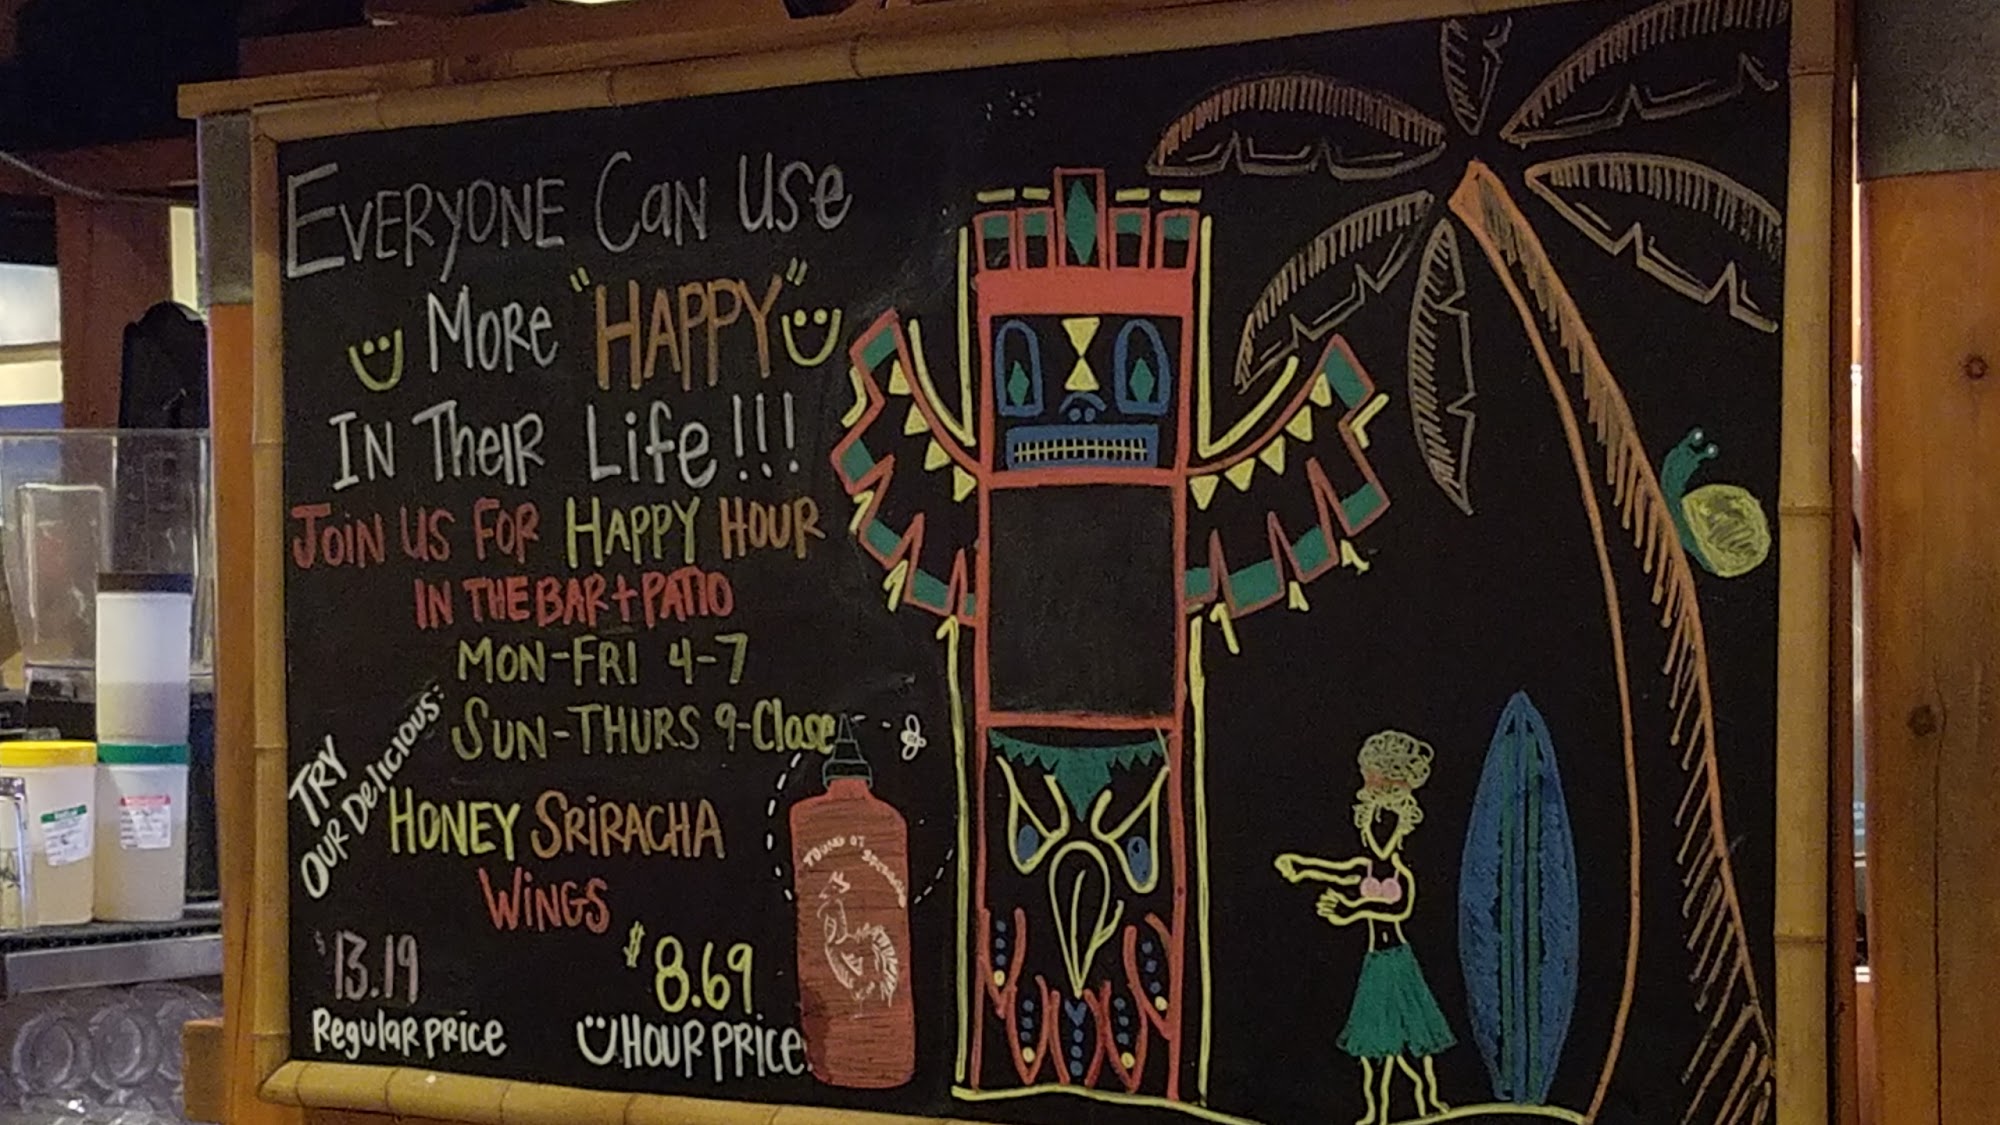 EVERYONE CaN Use
MoRe "HAPPY"
IN THeIR Life!!!
JoiN US FoR HAPPY HOUR
IN THE BAR + PATIO
MON-FRI 4-7
SUN-THURS 9-Close
TRY
OUR Delicious:
HONEY SRiRACHA
WiNGS
$13.19
Regular PRice
$8.69
HOUR PRICE